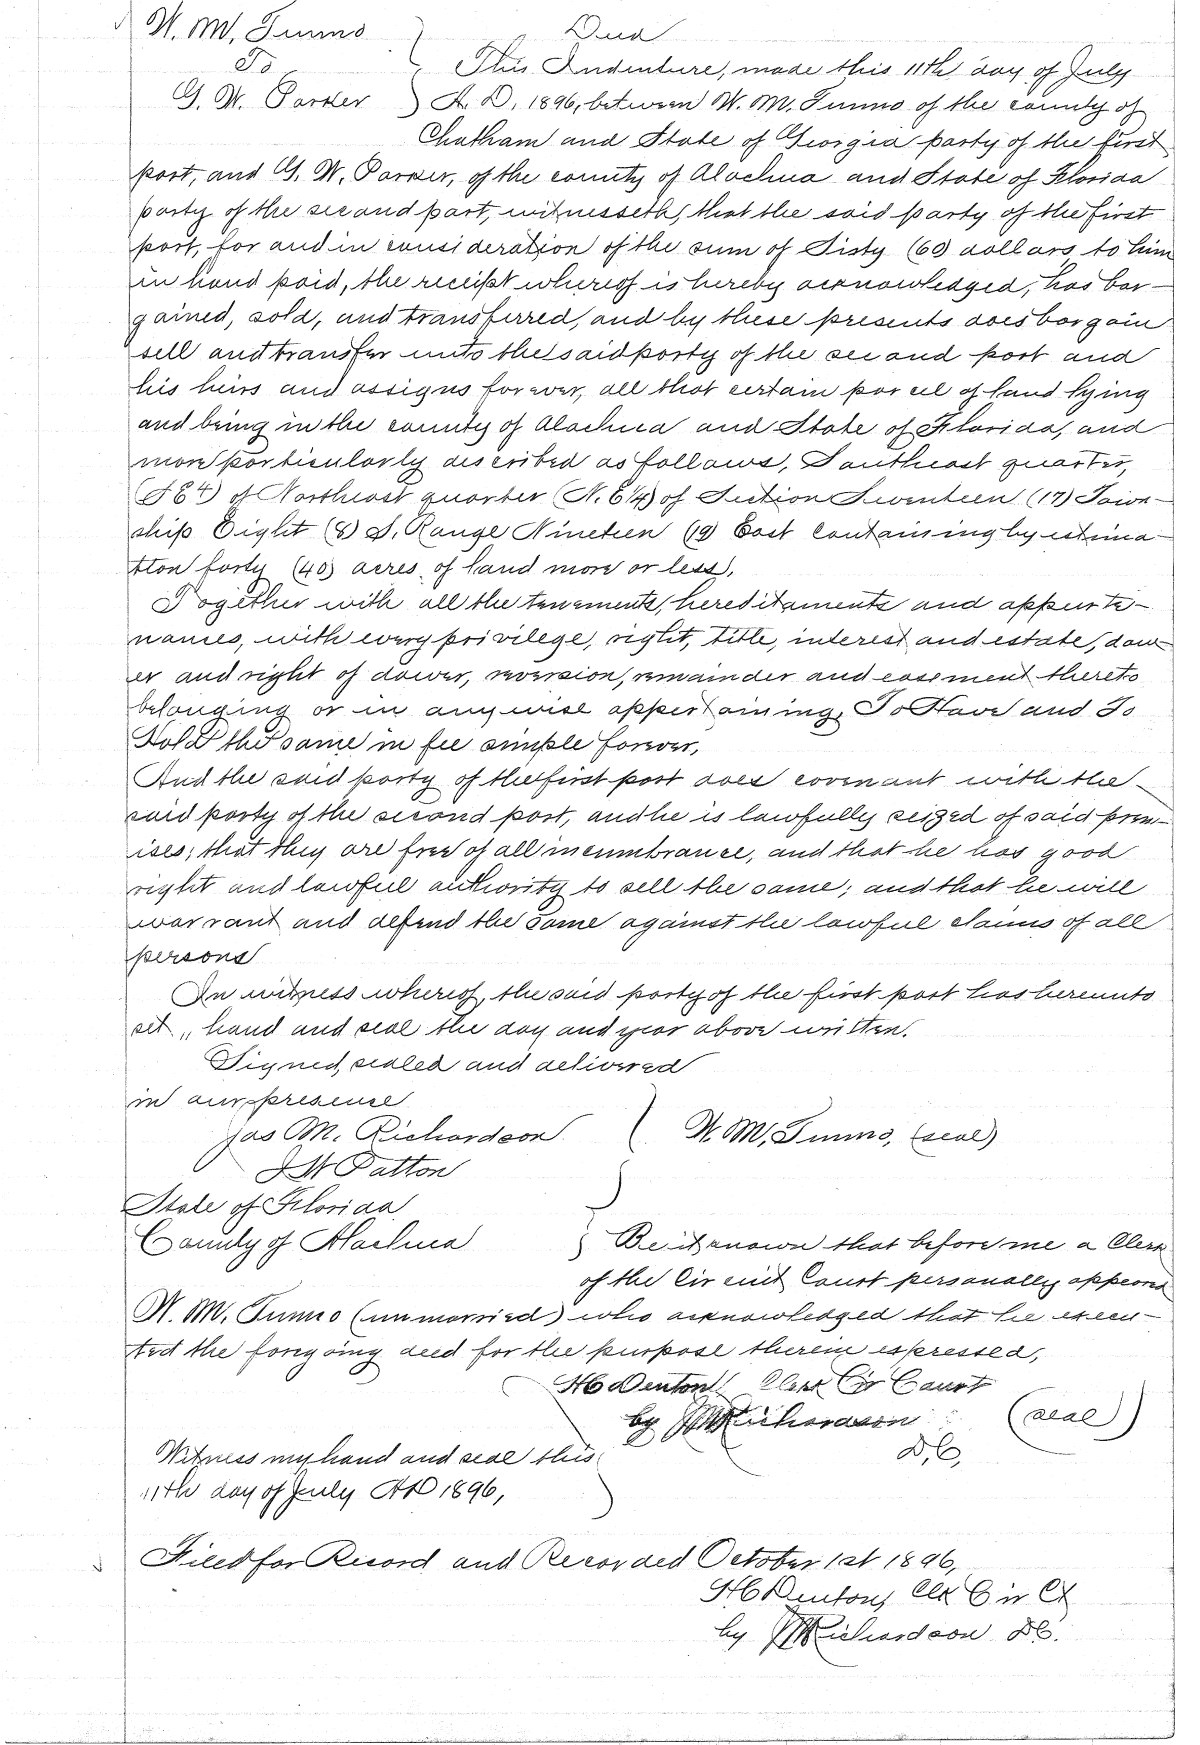 W. M. Tunno Deed
To This Indenture, made this 11th day of July
G. W. Parker A. D. 1896, between W. M. Tunno of the county of
Chatham and State of Georgia party of the first
part, and G. W. Parker, of the county of Alachua and State of Florida
party of the second part, witnesseth, that the said party of the first
part, for and in consideration of the sum of Sixty (60) dollars, to him
in hand paid, the receipt whereof is hereby acknowledged, has bar-
gained, sold, and transferred, and by these presents does bargain
sell and transfer unto the said party of the second part and
his heirs and assigns forever, all that certain parcel of land lying
and being in the county of Alachua and State of Florida, and
more particularly described as follows, Southeast quarter,
(S E 4) of Northeast quarter (N. E 4) of Section Seventeen (17) Town-
ship Eight (8) S. Range Nineteen (19) East containing by estima-
tion forty (40) acres of land more or less.
Together with all the tenements, hereditaments and appurte-
nances, with every privilege, right, title, interest and estate, dow-
er and right of dower, reversion, remainder and easement thereto
belonging or in anywise appertaining. To Have and To
Hold the same in fee simple forever,
And the said party of the first part does covenant with the
said party of the second part, and he is lawfully seized of said prem-
ises; that they are free of all incumbrance, and that he has good
right and lawful authority to sell the same; and that he will
warrant and defend the same against the lawful claims of all
persons
In witness whereof, the said party of the first part has hereunto
set " hand and seal the day and year above written.
Signed, sealed and delivered
in our presence
Jas M. Richardson W. M. Tunno, (seal)
J W Patton
State of Florida
County of Alachua Be it known that before me a Clerk
of the Circuit Court personally appeared
W. M. Tunno (unmarried) who acknowledged that he execu-
ted the foregoing deed for the purpose therein expressed,
H C Denton Clerk Cir Court
by J M Richardson (seal)
D. C.
Witness my hand and seal this
11th day of July A D 1896,
Filed for Record and Recorded October 1st 1896,
H C Denton, Clk Cir Ct
by J M Richardson D C.